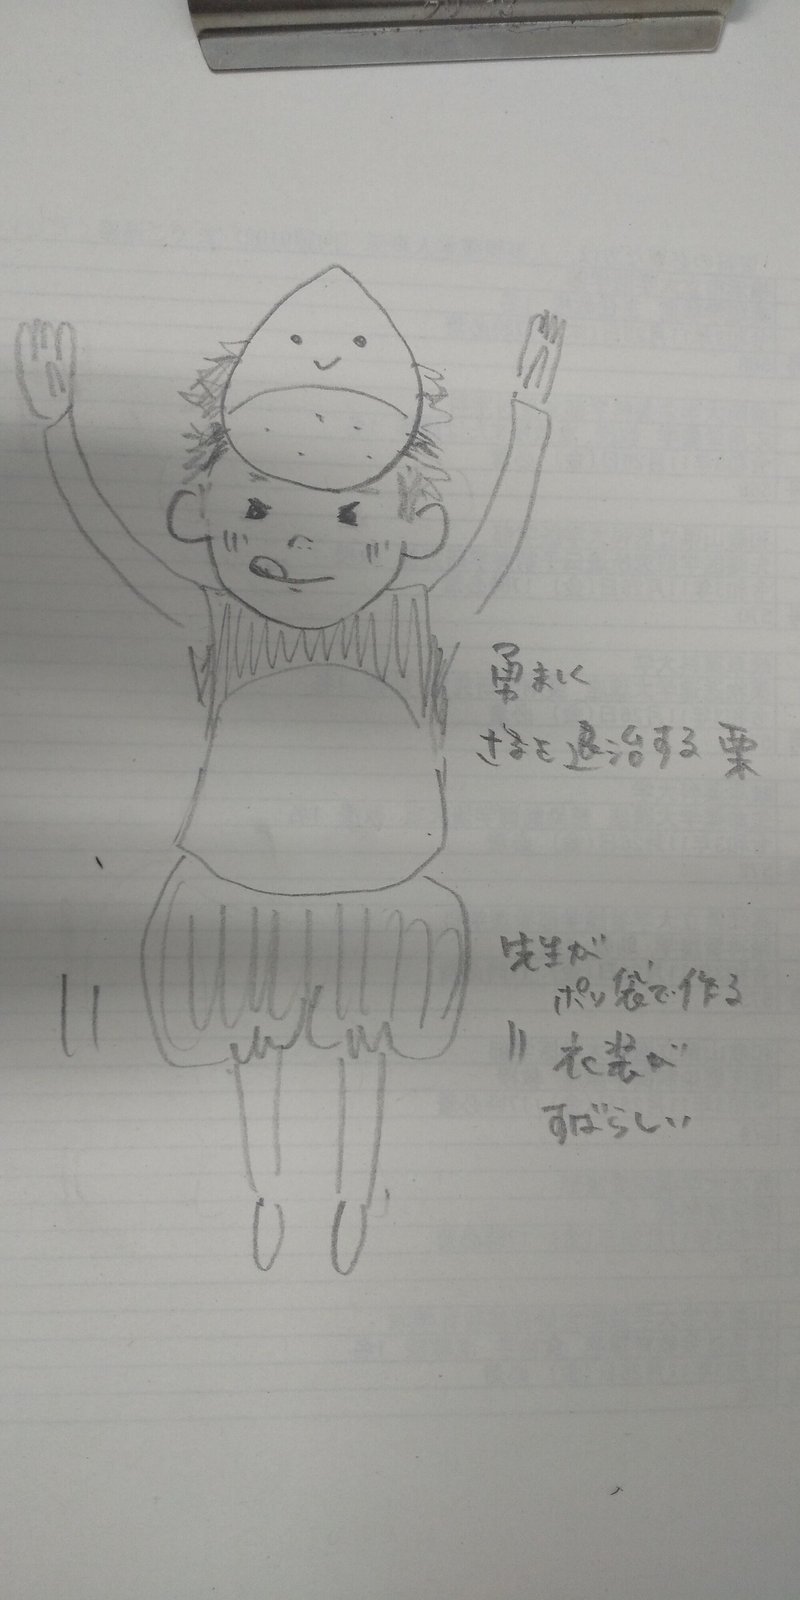 勇ましく
さるを退治する栗
先生が
ポリ袋で作る
衣装が
すばらしい